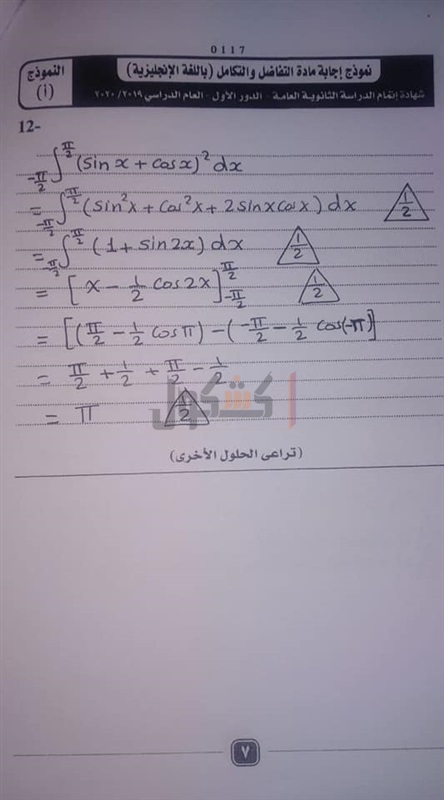 0117
نموذج إجابة مادة التفاضل والتكامل (باللغة الإنجليزية)
شهادة إتمام الدراسة الثانوية العامة - الدور الأول - العام الدراسي ٢٠١٩/٢٠٢٠
النموذج
(أ)
12-
-π/2 ∫ π/2 (sin x + cos x)² dx
= -π/2 ∫ π/2 (sin²x + cos²x + 2 sin x cos x) dx 1/2
= -π/2 ∫ π/2 (1 + sin 2x) dx 1/2
= [x - 1/2 cos 2x] π/2 -π/2 1/2
= [(π/2 - 1/2 cos π) - (-π/2 - 1/2 cos(-π)]
= π/2 + 1/2 + π/2 - 1/2
= π 1/2
كشكول
(تراعى الحلول الأخرى)
٧